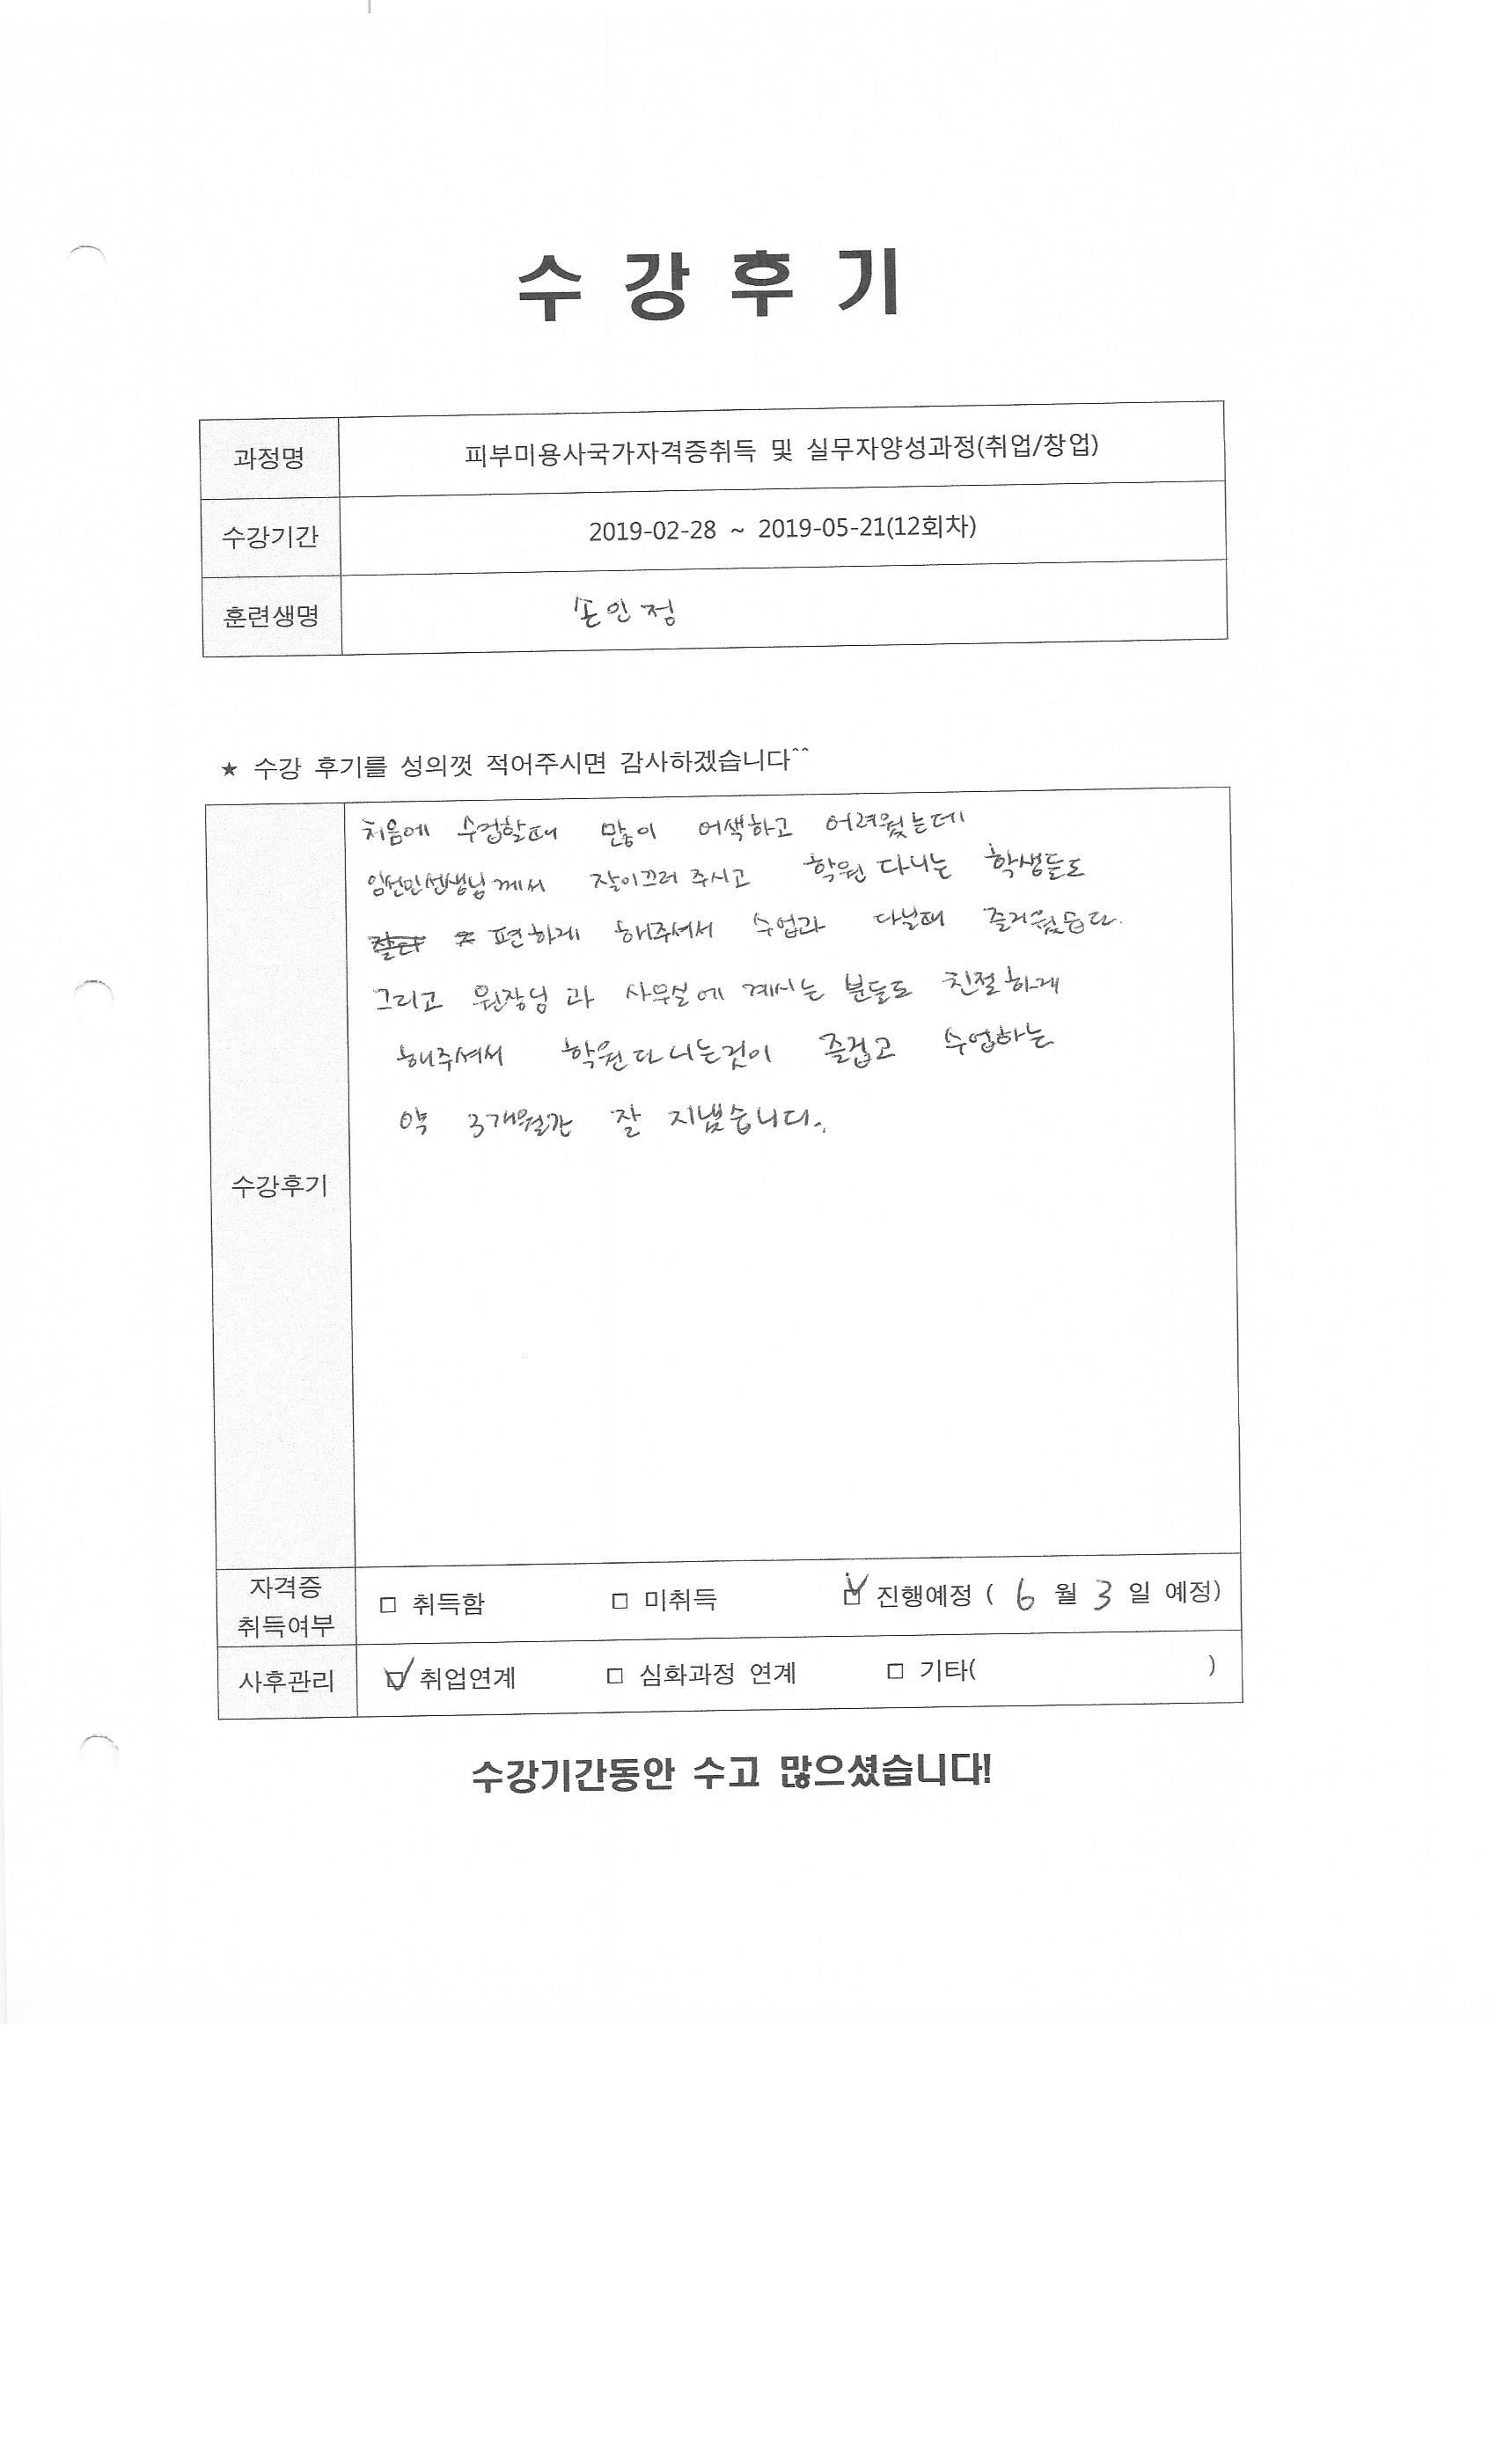 수강후기
과정명 피부미용사국가자격증취득 및 실무자양성과정(취업/창업)
수강기간 2019-02-28 ~ 2019-05-21(12회차)
훈련생명 손인정
★ 수강 후기를 성의껏 적어주시면 감사하겠습니다^^
처음에 수업할때 많이 어색하고 어려웠는데
임선민선생님께서 잘이끄러 주시고 학원 다니는 학생들도
편하게 해주셔서 수업과 다닐때 즐거웠습다.
그리고 원장님과 사무실에 계시는 분들도 친절하게
해주셔서 학원다니는것이 즐겁고 수업하는
약 3개월간 잘 지냈습니다.
수강후기
자격증
취득여부
□ 취득함 □ 미취득 ☑ 진행예정 ( 6 월 3 일 예정)
사후관리 ☑ 취업연계 □ 심화과정 연계 □ 기타( )
수강기간동안 수고 많으셨습니다!